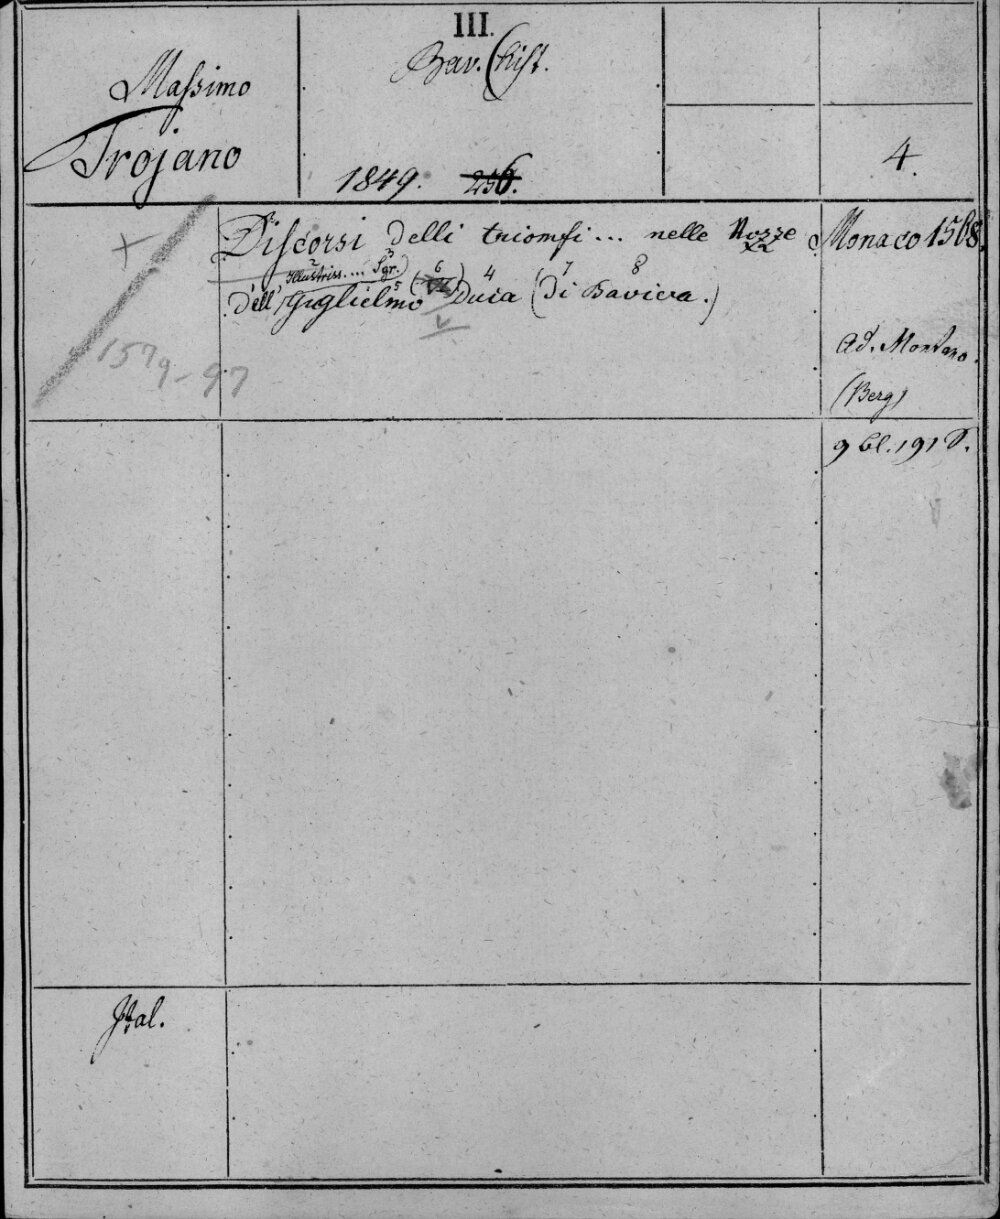 III.
Bav. (hist.
Massimo
Trojano
1849. 256.
4.
Discorsi delli triomfi ... nelle Nozze
Illustriss.... Sgr.)
dell' Guglielmo (VI) Duca (di Baviera.)
V
Monaco 1568.
Ad. Montano.
(Berg)
+
1579-97
9 Bl. 191 S.
Ital.